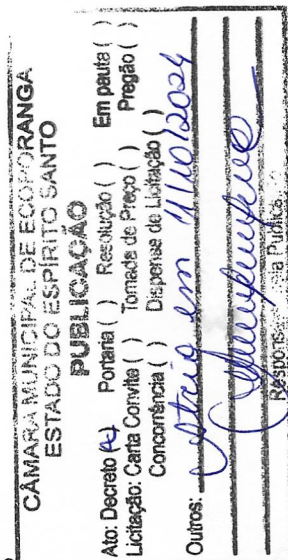 CÂMARA MUNICIPAL DE ECOPORANGA
ESTADO DO ESPIRITO SANTO
PUBLICAÇÃO
Ato: Decreto ( ) Portaria ( ) Resolução ( ) Em pauta ( )
Licitação: Carta Convite ( ) Tomada de Preço ( ) Pregão ( )
Concorrência ( ) Dispensa de Licitação ( )
Outros: em 11/10/2024